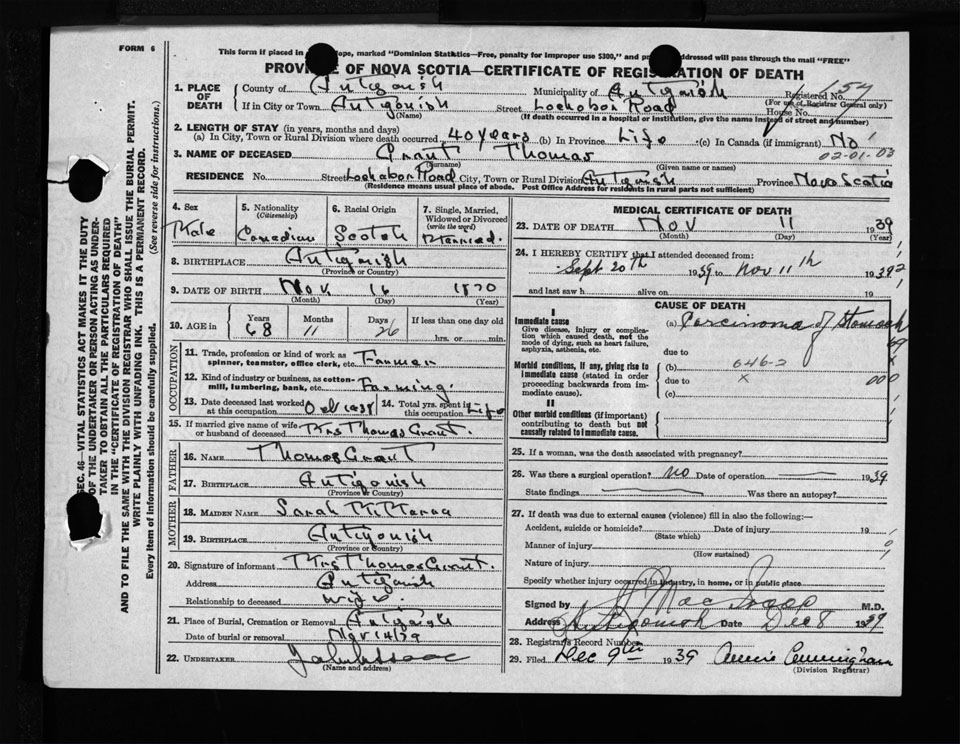 FORM 6
This form if placed in ope, marked "Dominion Statistics—Free, penalty for improper use $300," and addressed will pass through the mail "FREE"
PROVINCE OF NOVA SCOTIA—CERTIFICATE OF REGISTRATION OF DEATH
1. PLACE OF DEATH
County of Antigonish Municipality of Antigonish Registered No. 54
(For use of Registrar General only)
If in City or Town Antigonish Street Lochabar Road House No.
(Name) (If death occurred in a hospital or institution, give the name instead of street and number)
2. LENGTH OF STAY (in years, months and days)
(a) In City, Town or Rural Division where death occurred 40 years (b) In Province Life (c) In Canada (if immigrant) No
02-01-03
3. NAME OF DECEASED Grant Thomas
(Surname) (Given name or names)
RESIDENCE No. Street Lochabar Road City, Town or Rural Division Antigonish Province Nova Scotia
(Residence means usual place of abode. Post Office Address for residents in rural parts not sufficient)
4. Sex Male
5. Nationality (Citizenship) Canadian
6. Racial Origin Scotch
7. Single, Married, Widowed or Divorced (write the word) Married.
8. BIRTHPLACE Antigonish
(Province or Country)
9. DATE OF BIRTH Nov 16 1870
(Month) (Day) (Year)
10. AGE in Years 68 Months 11 Days 26 If less than one day old
hrs. or min.
OCCUPATION
11. Trade, profession or kind of work as spinner, teamster, office clerk, etc. Farmer
12. Kind of industry or business, as cotton-mill, lumbering, bank, etc. Farming.
13. Date deceased last worked at this occupation Oct 1938 14. Total yrs. spent in this occupation Life
15. If married give name of wife or husband of deceased Mrs Thomas Grant.
FATHER
16. NAME Thomas Grant
17. BIRTHPLACE Antigonish
(Province or Country)
MOTHER
18. MAIDEN NAME Sarah
19. BIRTHPLACE Antigonish
(Province or Country)
20. Signature of informant Mrs Thomas Grant.
Address Antigonish
Relationship to deceased wife
21. Place of Burial, Cremation or Removal Antigonish
Date of burial or removal Nov 14/39
22. UNDERTAKER
(Name and address)
MEDICAL CERTIFICATE OF DEATH
23. DATE OF DEATH Nov 11 1939
(Month) (Day) (Year)
24. I HEREBY CERTIFY that I attended deceased from:
Sept 20th 1939 to Nov 11th 1939
and last saw h alive on 19
CAUSE OF DEATH
I
Immediate cause (a) Carcinoma of Stomach
Give disease, injury or complication which caused death, not the mode of dying, such as heart failure, asphyxia, asthenia, etc.
due to
Morbid conditions, if any, giving rise to immediate cause (stated in order proceeding backwards from immediate cause).
(b) 646-2
due to x 000
(c)
II
Other morbid conditions (if important) contributing to death but not causally related to immediate cause.
25. If a woman, was the death associated with pregnancy?
26. Was there a surgical operation? no Date of operation 1939
State findings Was there an autopsy?
27. If death was due to external causes (violence) fill in also the following:—
Accident, suicide or homicide? Date of injury 19
(State which)
Manner of injury
(How sustained)
Nature of injury
Specify whether injury occurred in industry, in home, or in public place
Signed by M.D.
Address Antigonish Date Dec 8 1939
28. Registrar's Record Number
29. Filed Dec 9th 1939 Annie Cunningham
(Division Registrar)
SEC. 46—VITAL STATISTICS ACT MAKES IT THE DUTY
OF THE UNDERTAKER OR PERSON ACTING AS UNDERTAKER TO OBTAIN ALL THE PARTICULARS REQUIRED
IN THE "CERTIFICATE OF REGISTRATION OF DEATH"
AND TO FILE THE SAME WITH THE DIVISION REGISTRAR WHO SHALL ISSUE THE BURIAL PERMIT.
WRITE PLAINLY WITH UNFADING INK. THIS IS A PERMANENT RECORD.
Every item of information should be carefully supplied. (See reverse side for instructions.)